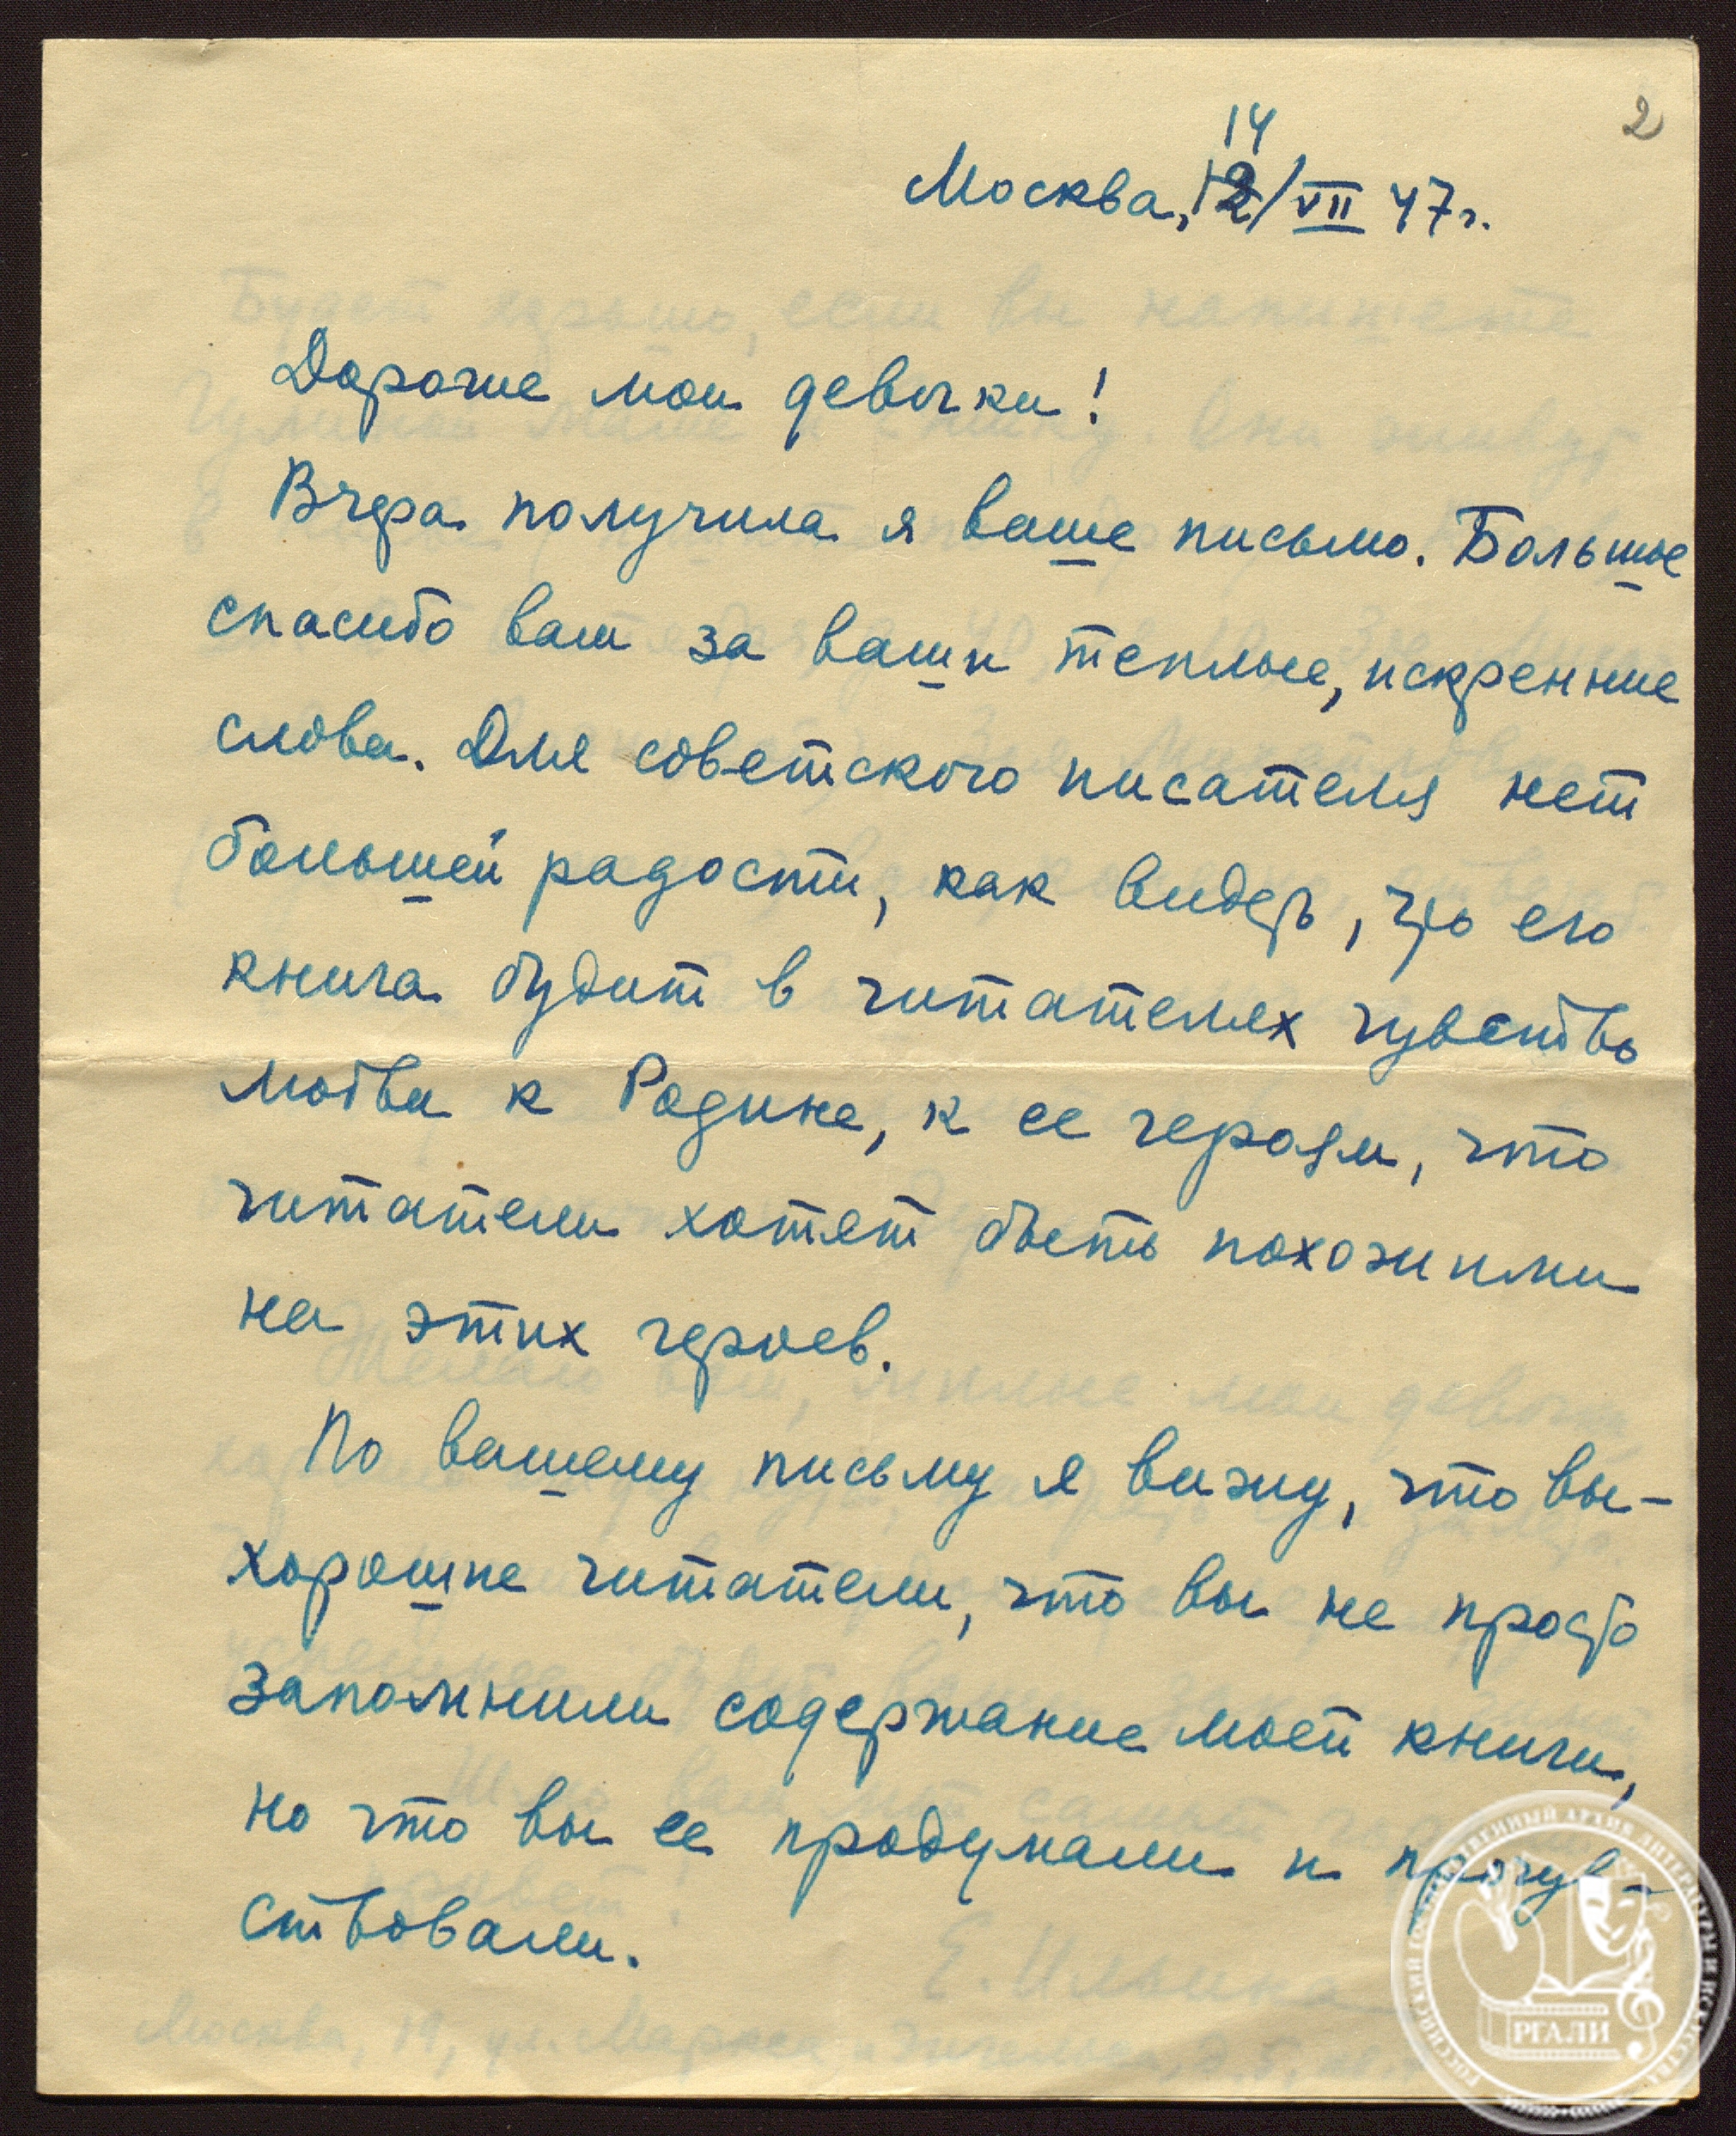 2
14
Москва, 12/VII 47 г.
Дорогие мои девочки!
Вчера получила я ваше письмо. Большое
спасибо вам за ваши теплые, искренние
слова. Для советского писателя нет
большей радости, как видеть, что его
книга будит в читателях чувство
любви к Родине, к ее героям, что
читатели хотят быть похожими
на этих героев.
По вашему письму я вижу, что вы -
хорошие читатели, что вы не просто
запомнили содержание моей книги,
но что вы ее продумали и прочув-
ствовали.
Е. Ильина
РОССИЙСКИЙ ГОСУДАРСТВЕННЫЙ АРХИВ ЛИТЕРАТУРЫ И ИСКУССТВА
РГАЛИ